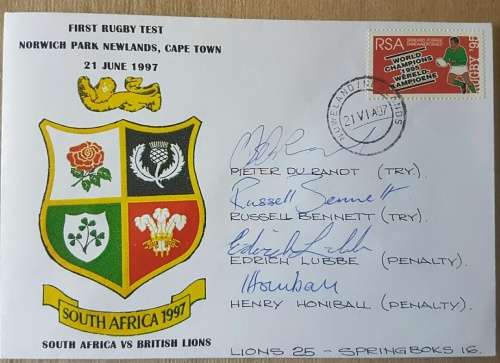 FIRST RUGBY TEST
NORWICH PARK NEWLANDS, CAPE TOWN
21 JUNE 1997
RSA
WORLD
CHAMPIONS
1995
WÊRELD-
KAMPIOENE
RUGBY '95
21 VI A 97
PIETER DU RANDT (TRY).
Russell Bennett
RUSSELL BENNETT (TRY).
Edrich Lubbe
EDRICH LUBBE (PENALTY).
HHoniball
HENRY HONIBALL (PENALTY).
SOUTH AFRICA 1997
SOUTH AFRICA VS BRITISH LIONS
LIONS 25 - SPRINGBOKS 16.